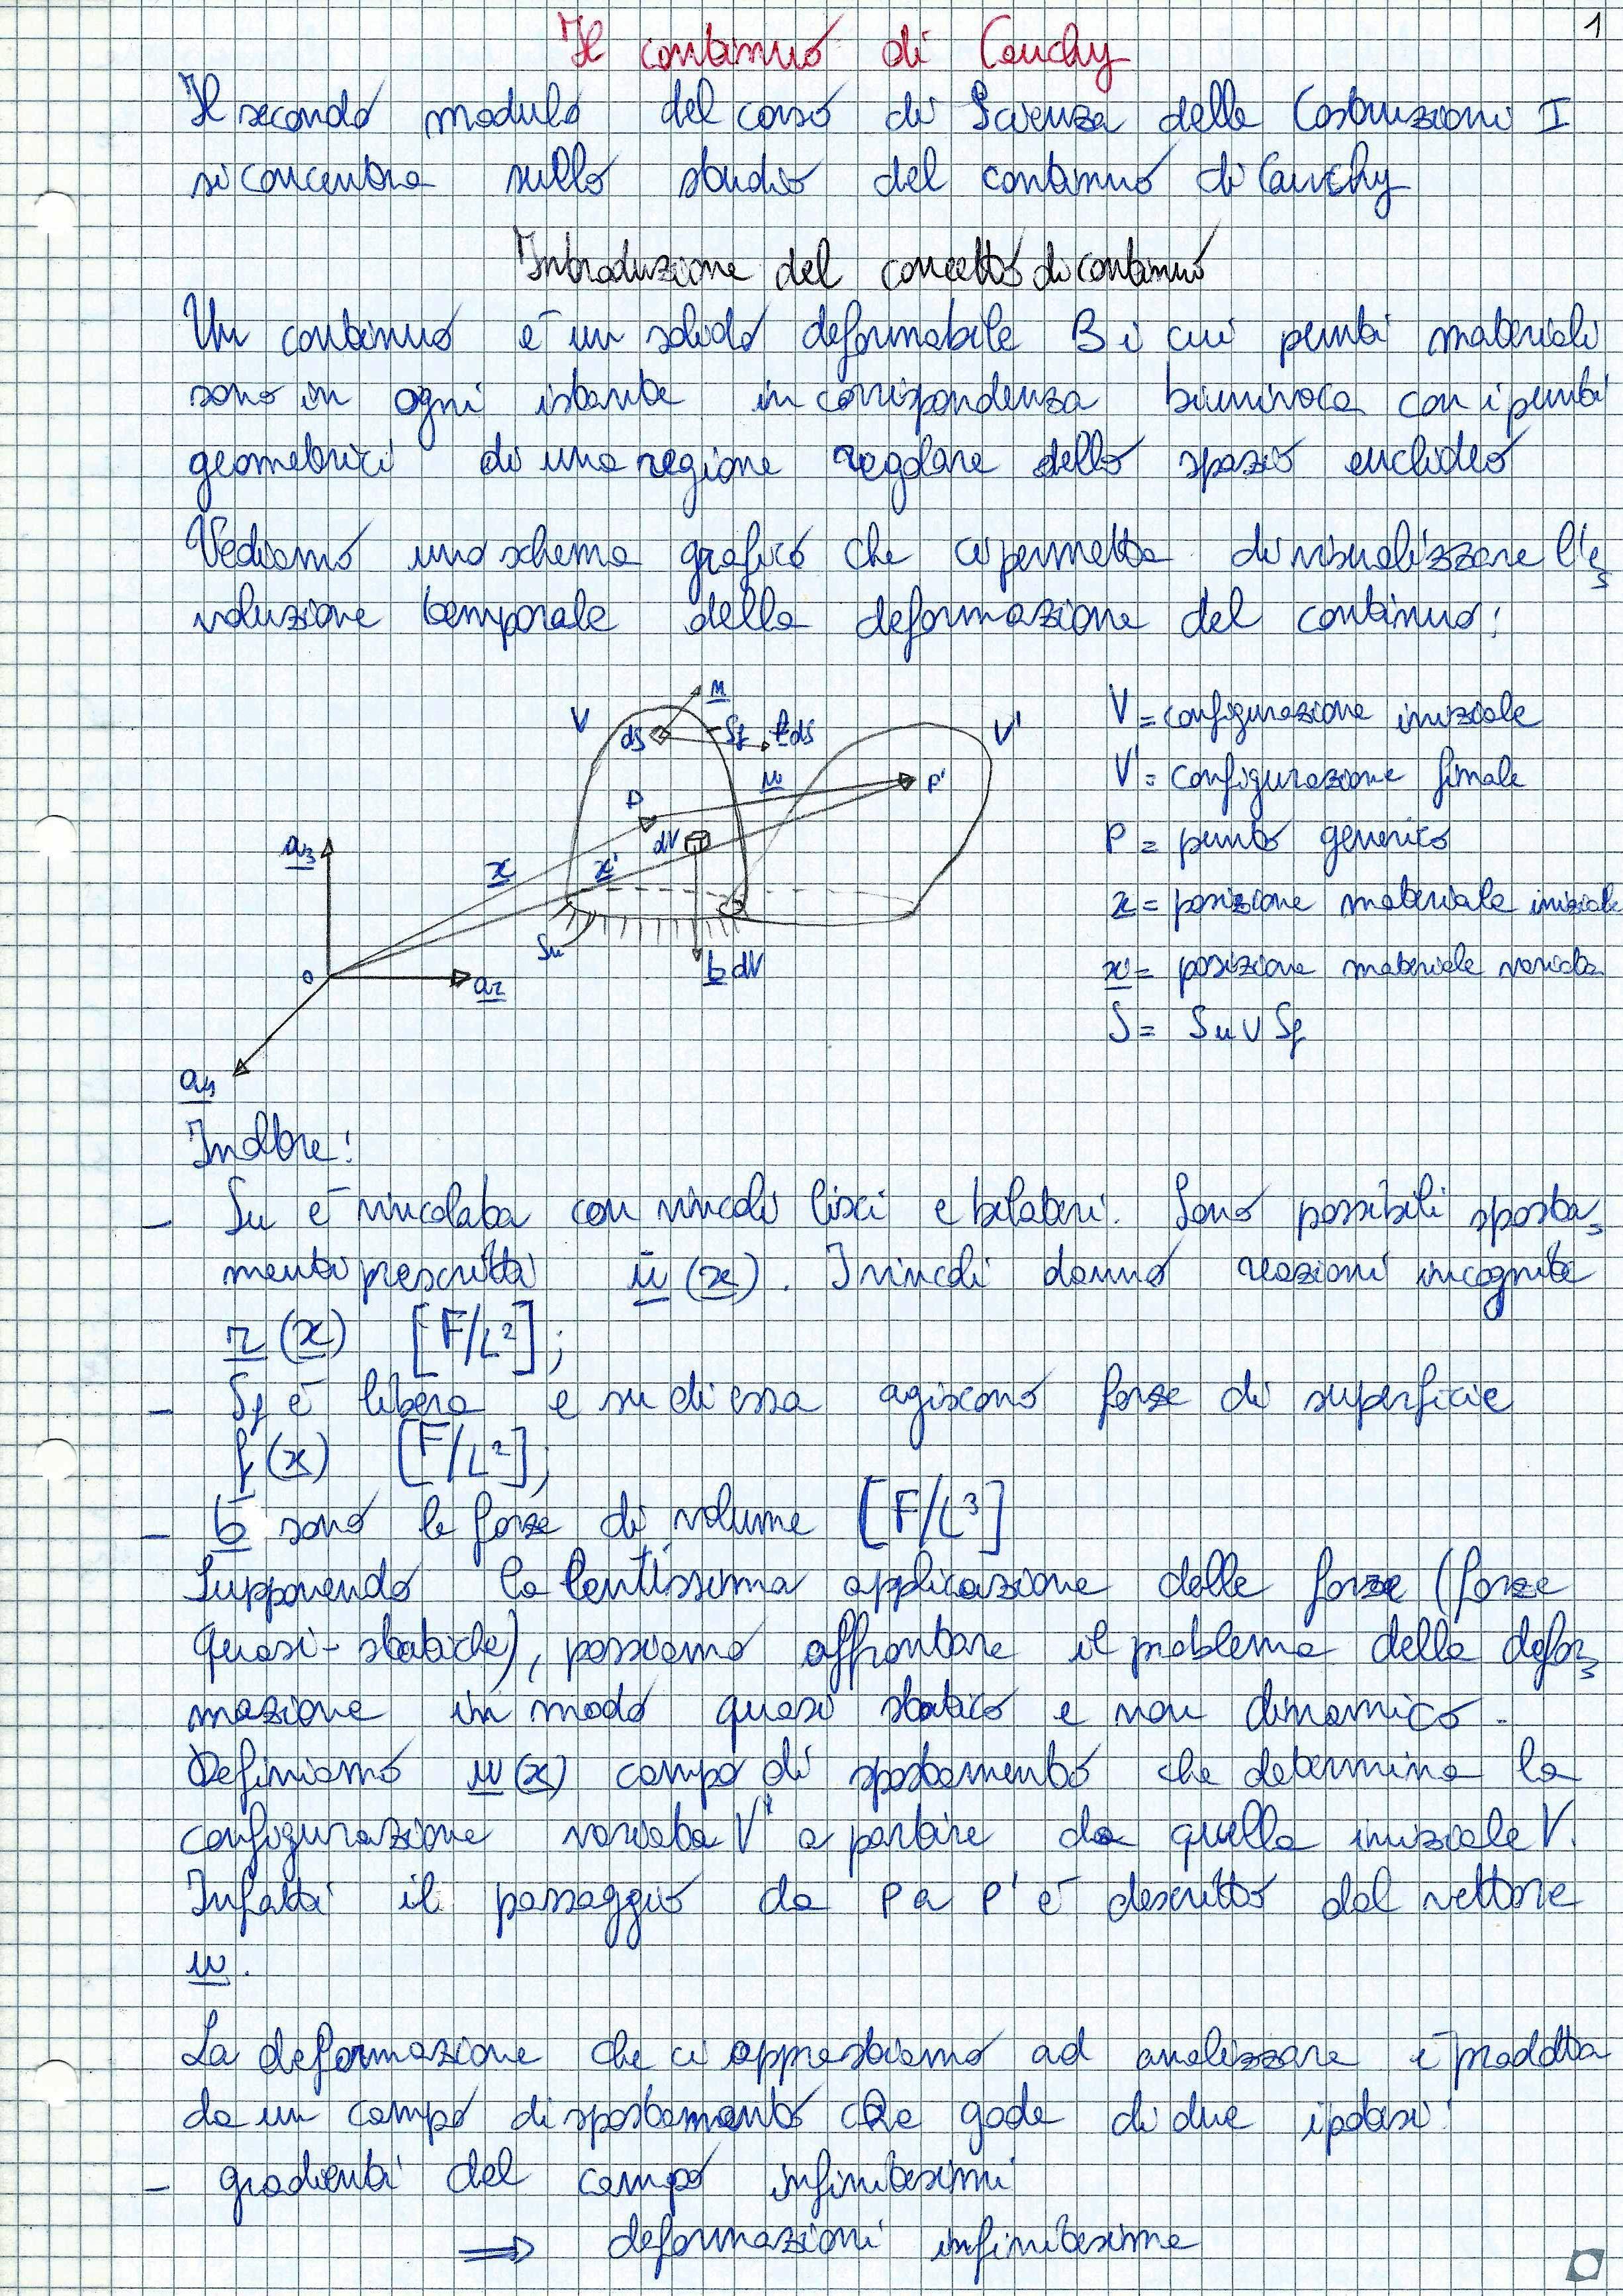 1
Il continuo di Cauchy
Il secondo modulo del corso di Scienza delle Costruzioni I
si concentra sullo studio del continuo di Cauchy
Introduzione del concetto di continuo
Un continuo è un solido deformabile B i cui punti materiali
sono in ogni istante in corrispondenza biunivoca con i punti
geometrici di una regione regolare dello spazio euclideo
Vediamo uno schema grafico che ci permetta di visualizzare l'e
voluzione temporale della deformazione del continuo:
V n dS Sf f dS V'
P u P'
dV
a3 x x'
Su
b dV
O a2
a1
V = configurazione iniziale
V' = configurazione finale
P = punto generico
x = posizione materiale iniziale
x' = posizione materiale variata
S = Su ∪ Sf
Inoltre:
- Su è vincolata con vincoli lisci e bilateri. Sono possibili sposta
menti prescritti ū (x). I vincoli danno reazioni incognite
r (x) [F/L²];
- Sf è libera e su di essa agiscono forze di superficie
f (x) [F/L²];
- b sono le forze di volume [F/L³]
Supponendo la lentissima applicazione delle forze (forze
quasi-statiche), possiamo affrontare il problema della defor
mazione in modo quasi statico e non dinamico.
Definiamo u (x) campo di spostamento che determina la
configurazione variata V' a partire da quella iniziale V.
Infatti il passaggio da P a P' è descritto dal vettore
u.
La deformazione che ci apprestiamo ad analizzare è prodotta
da un campo di spostamento che gode di due ipotesi:
- gradienti del campo infinitesimi
⇒ deformazioni infinitesime